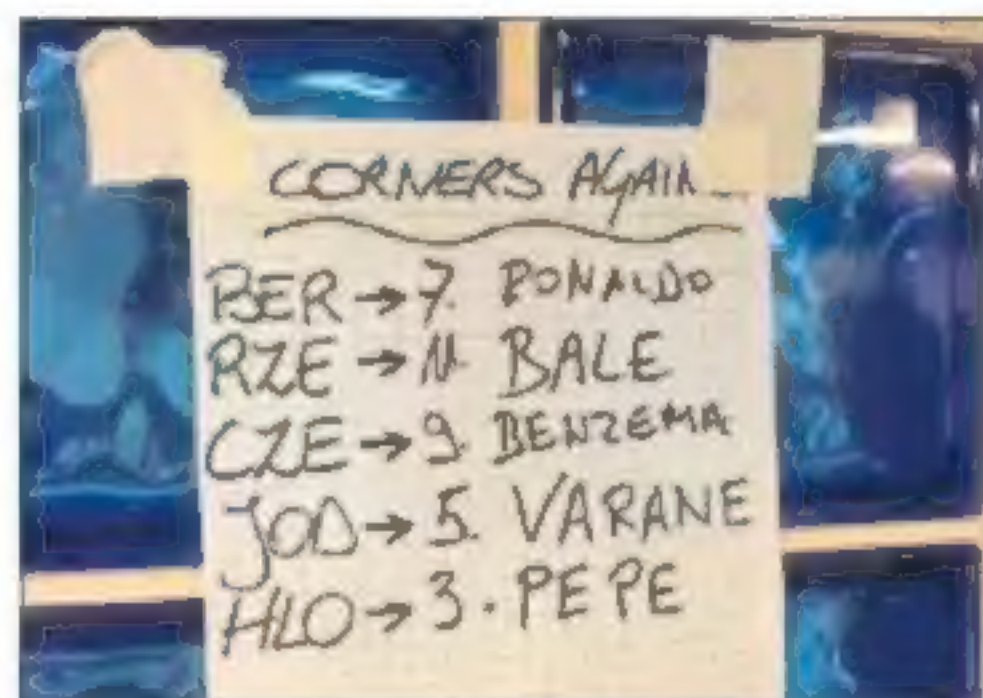 CORNERS AGAIN
BER → 7. RONALDO
RZE → 11. BALE
CZE → 9. BENZEMA
JOD → 5. VARANE
HLO → 3. PEPE